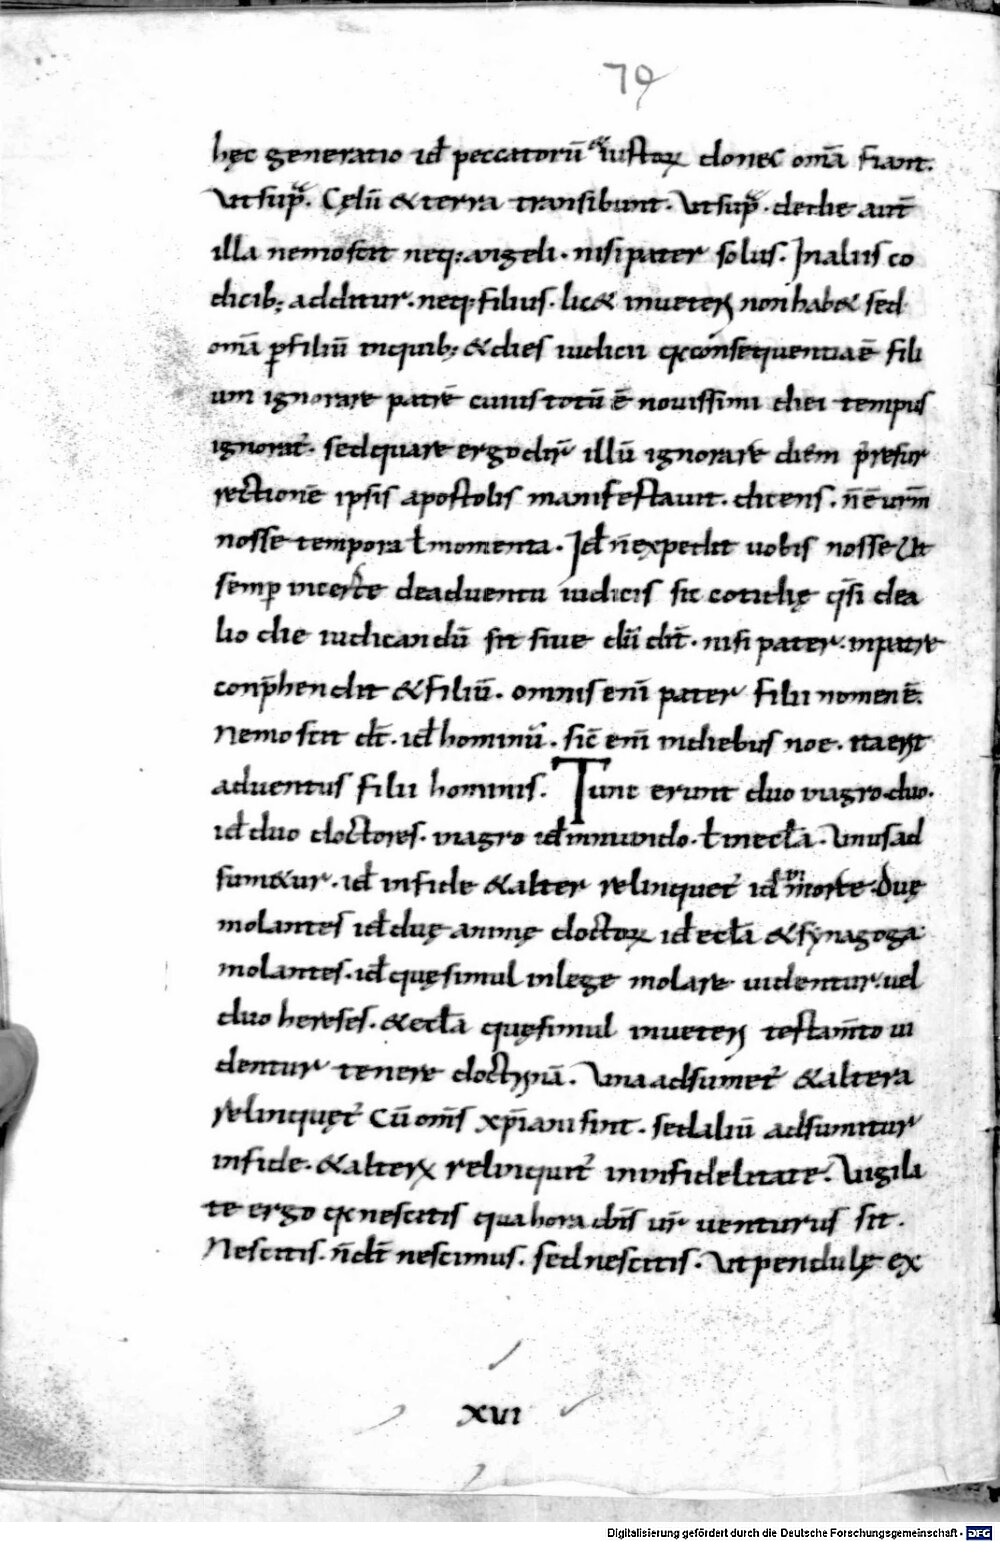 79
hęc generatio id᷒ peccatorū & iustoꝝ donec om̄a fiant.
Ut sup̄. Cęlū & terra transibunt. Ut sup̄. de die aut̄
illa nemo scit neq; angeli. nisi pater solus. In aliis co
dicib; additur. neq; filius. lic& in ueteri non hab& sed
om̄a ꝑ filiū inquib; & dies iudicii consequentia ē fili
um ignorare patrē cuius totū ē nouissimi diei tempus
ignorat᷒. sed quare ergo dr̄ illū ignorare diem resur
rectionē ipsis apostolis manifestauit. dicens. n̄ ē ur̄m
nosse tempora ł momenta. Id᷒ n̄ expedit uobis nosse Ut
semp̄ incerte de aduentu iudicis sic cotidię q̄si de a
lio die iudicandū sit siue dn̄i dn̄t. nisi pater. in patre
conp̄hendit & filiū. omnis enī pater filii nomen ē.
Nemo scit dt̄. id᷒ hominū. sic̄ enī in diebus noe. ita erit
aduentus filii hominis. Tunc erunt duo in agro. duo.
id᷒ duo doctores. in agro id᷒ in mundo. ł in eccła. Unus ad
sum&ur. id᷒ in fide & alter relinquet᷒ id᷒ in morte. Duę
molantes id᷒ duę animę doctoꝝ id᷒ eccła & synagoga
molantes. id᷒ quę simul in lege molare uidentur. uel
duo hereses. & eccła quę simul in ueteri testam̄to ui
dentur tenere doctrinā. Una adsumet᷒ & altera
relinquęt᷒ Cū om̄s xp̄iani sint. sed aliū adsumitur
in fide. & alterꝝ relinquit᷒ in infidelitate. Uigila
te ergo nescitis qua hora dn̄s ur̄ uenturus sit.
Nescitis. n̄ dt̄ nescimus. sed nescitis. Ut pendulę ex
XVI
Digitalisierung gefördert durch die Deutsche Forschungsgemeinschaft - DFG